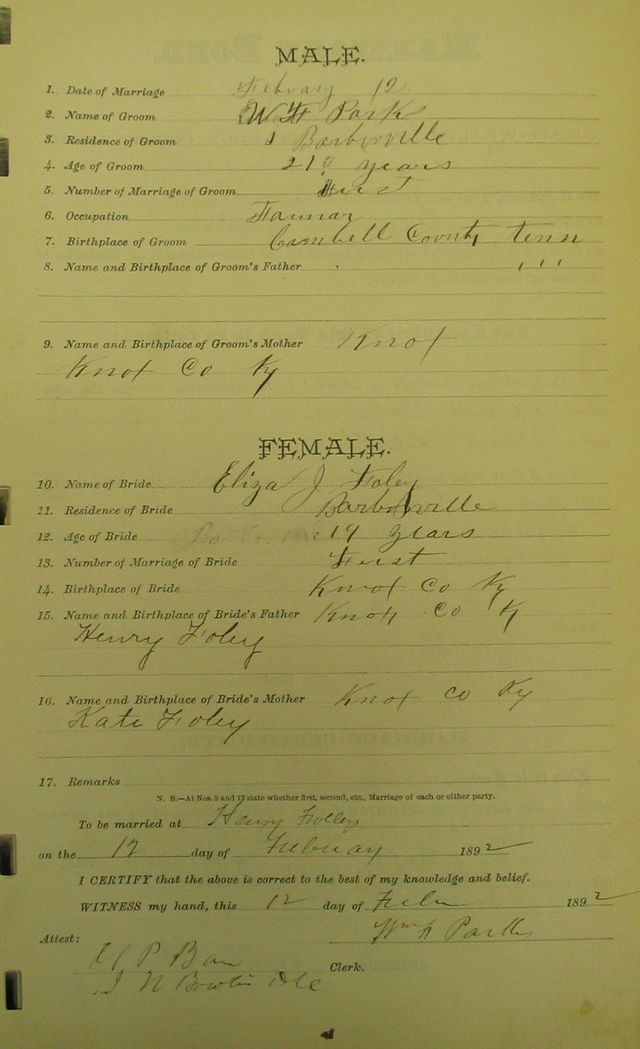 MALE.
1. Date of Marriage February 12
2. Name of Groom W Park
3. Residence of Groom Barborville
4. Age of Groom 21 years
5. Number of Marriage of Groom First
6. Occupation Farmar
7. Birthplace of Groom Cambell County tenn
8. Name and Birthplace of Groom's Father ' ' '
9. Name and Birthplace of Groom's Mother Knox
Knox Co Ky
FEMALE.
10. Name of Bride. Eliza J Foley
11. Residence of Bride Barborville
12. Age of Bride 19 years
13. Number of Marriage of Bride First
14. Birthplace of Bride Knox Co Ky
15. Name and Birthplace of Bride's Father Knox Co K
Henry Foley
16. Name and Birthplace of Bride's Mother Knox Co Ky
Kate Foley
17. Remarks
N. B.—At Nos. 5 and 13 state whether first, second, etc., Marriage of each or either party.
To be married at Henry Folleys
on the 12 day of February 1892
I CERTIFY that the above is correct to the best of my knowledge and belief.
WITNESS my hand, this 12 day of 1892
Wm Park
Attest:
Clerk.